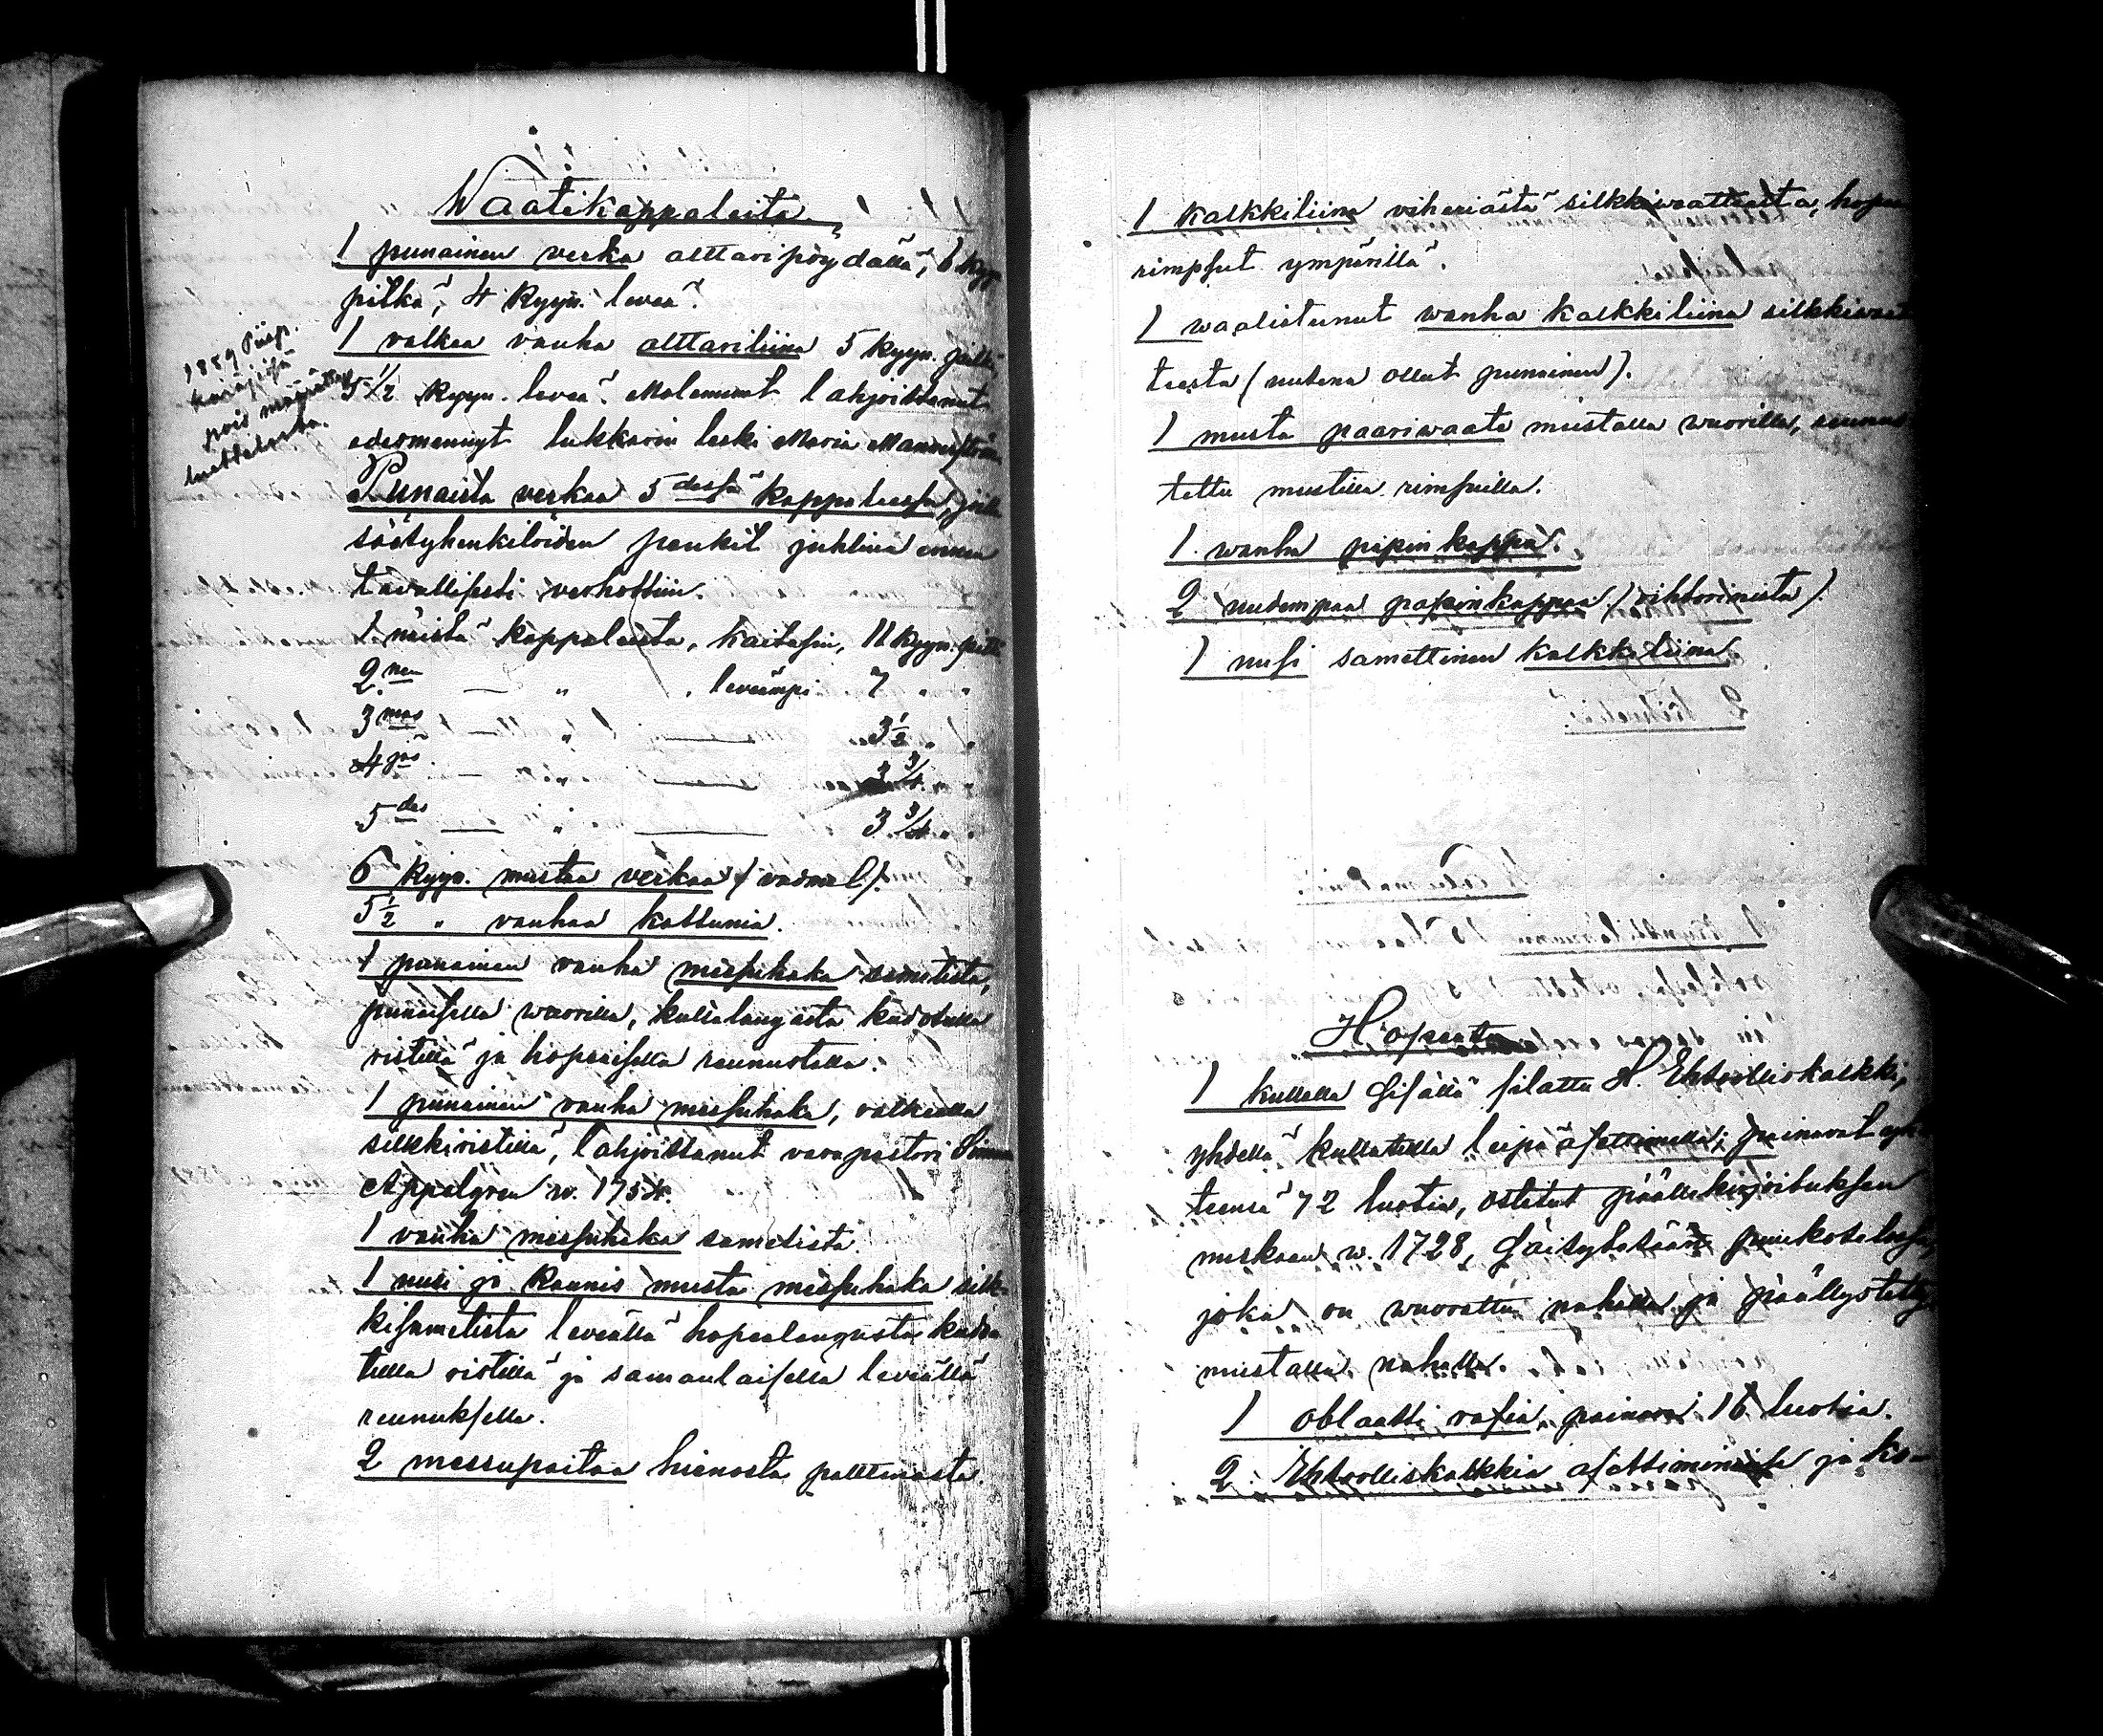 Waatekappaleita
1 punainen verka alttaripöydällä, 6 kyyn.
pitkä, 4 kyyn. leveä.
1 valkea vanha alttariliina 5 kyyn. pitkä,
5 1/2 kyyn. leveä. Molemmat lahjoittanut
edesmennyt lukkarin leski Maria
1889 Piisp.
käräjissä
pois määrätty
luettelosta.
Punaista verkaa 5 dessä kappaleessa, joilla
säätyhenkilöiden penkit juhlina ennen
tavallisesti verhottiin.
1 näistä kappaleista, kaitasin, 11 kyyn. pitkä
2 nen — " , leveämpi 7 " "
3 mas — " — 3 1/2 " "
4 jäs — " — 3 3/4 "
5 des — " — 3 3/4 " "
6 kyyn. mustaa verkaa (vadmal).
5 1/2 " vanhaa kattunia.
1 punainen vanha messuhaka sametista,
punaisella wuorilla, kultalangasta kudotulla
ristillä ja hopeaisella reunustella.
1 punainen vanha messuhaka, valkealla
silkkiristillä, lahjoittanut varapastori Simon
Appelgren w. 1754.
1 vanha messuhaka sametista.
1 uusi ja kaunis musta messuhaka silk-
kisametista leveällä hopealangasta kudo-
tulla ristillä ja samanlaisella leveällä
reunuksella.
2 messupaitaa hienosta palttinasta.
1 kalkkiliina viheriästä silkkiwaatteesta, hopea
rimpsut ympärillä.
1 waalistunut wanha kalkkiliina silkkiwaat-
teesta (uutena ollut punainen).
1 musta paariwaate mustalla wuorilla, reunus-
tettu mustilla rimsuilla.
1 wanha papin kappa.
2 uudempaa papinkappaa (vihtorinista).
1 uusi samettinen kalkkiliina.
Hopeata
1 kullella sisällä silattu H. Ehtoolliskalkki,
yhdellä kullatulla leipäasettimella; painavat yh-
teensä 72 luotia, ostetut päällekirjoituksen
mukaan w. 1728, säilytetään puukotelossa,
joka on wuorattu nahalla ja päällystetty
mustalla nahalla.
1 oblaatti rasia, painava 16 luotia.
2 Ehtoolliskalkkia asettiminensa ja ko-